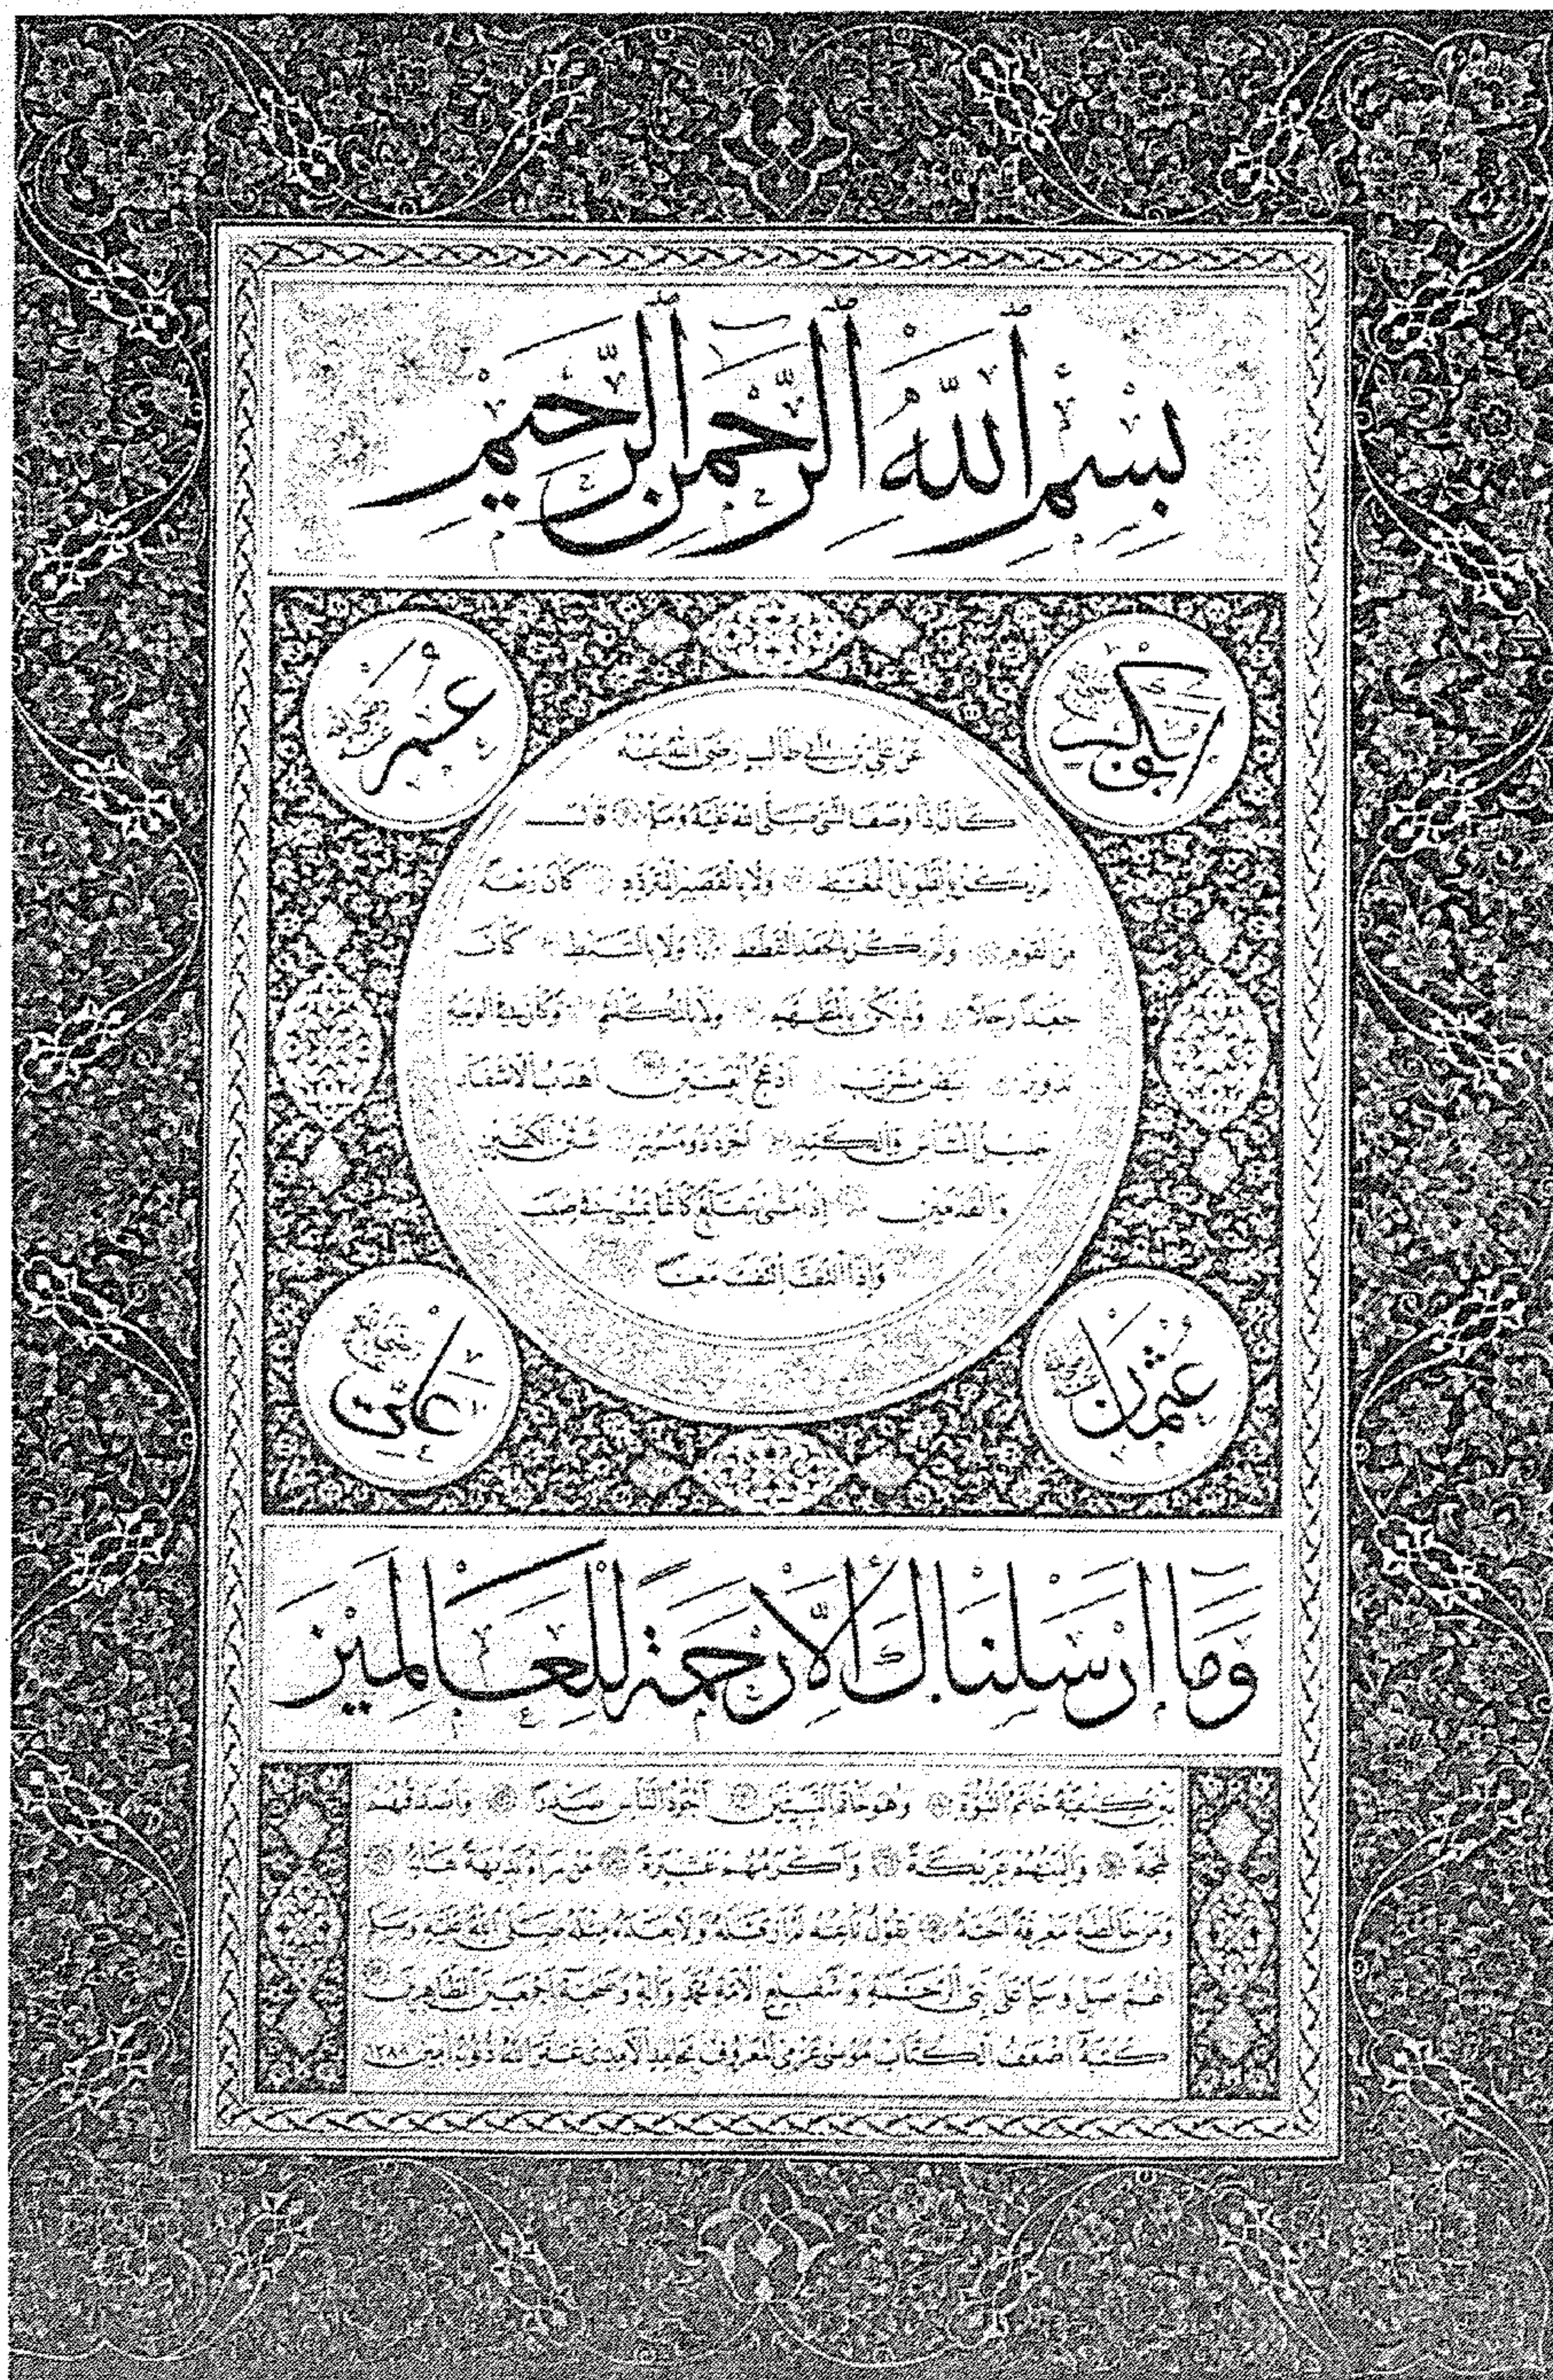 بِسْمِ ٱللَّهِ ٱلرَّحْمٰنِ ٱلرَّحِيمِ
أبو بكر
عُمَر
عن علي بن أبي طالب رضي الله عنه
كان إذا وصف النبي صلى الله عليه وسلم قال
لم يكن بالطويل الممغط ولا بالقصير المتردد كان ربعة
من القوم ولم يكن بالجعد القطط ولا بالسبط كان
جعدا رجلا ولم يكن بالمطهم ولا بالمكلثم وكان في الوجه
تدوير أبيض مشرب أدعج العينين أهدب الأشفار
جليل المشاش والكتد أجرد ذو مسربة شثن الكفين
والقدمين إذا مشى يتقلع كأنما يمشي في صبب
وإذا التفت التفت معا
عثمان
علي
وَمَا أَرْسَلْنَاكَ إِلَّا رَحْمَةً لِلْعَالَمِينَ
بين كتفيه خاتم النبوة وهو خاتم النبيين أجود الناس صدرا وأصدقهم
لهجة وألينهم عريكة وأكرمهم عشيرة من رآه بديهة هابه
ومن خالطه معرفة أحبه يقول ناعته لم أر قبله ولا بعده مثله صلى الله عليه وسلم
اللهم صل وسلم على نبي الرحمة وشفيع الأمة محمد وآله وصحبه أجمعين الطاهرين
كتبه أضعف الكتاب موسى عزمي المعروف بحامد الآمدي غفر الله ذنوبه آمين